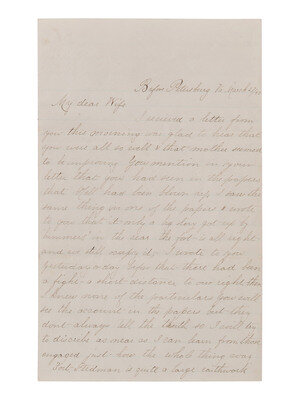 Before Petersburg Va
My dear Wife
I received a letter from
you this morning was glad to hear that
you were all so well & that mother seemed
to be improving You mention in your
letter that you had seen in the papers
that had been I saw the
same thing in one of the papers & wrote
to you that it only a big story got up by
in the rear the fort is all right
and we still occupy it. I wrote to you
yesterday or day before that there had been
a fight a short distance to our right then
I knew none of the particulars you will
see the account in the papers but they
dont always tell the truth so I will try
to describe as near as I can learn from those
engaged just how the whole thing was
Fort Stedman is quite a large earthwork